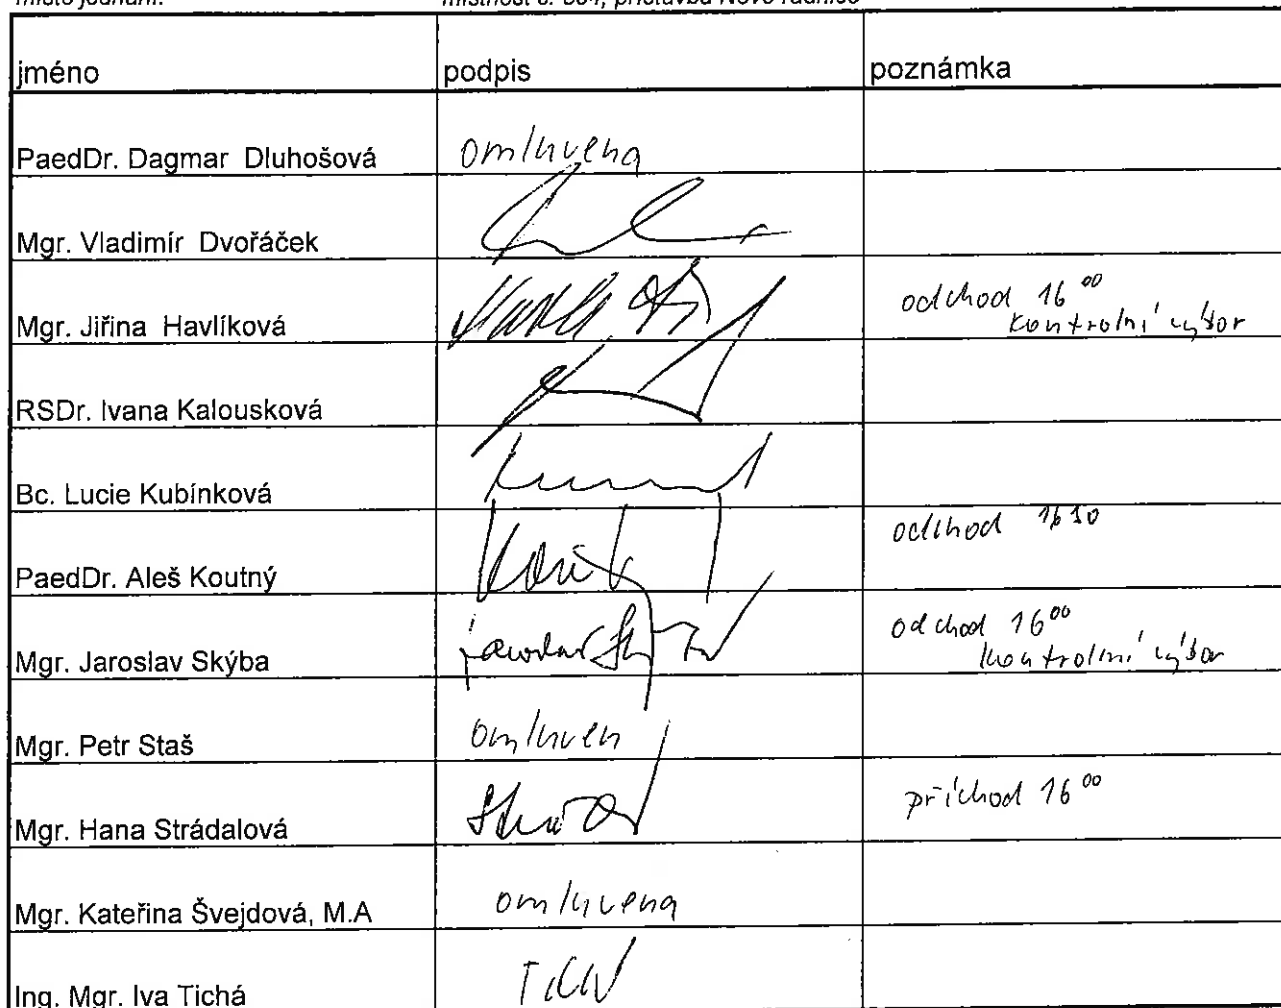 místo jednání: místnost č. 364, přístavba Nové radnice
jméno podpis poznámka
PaedDr. Dagmar Dluhošová omluvena
Mgr. Vladimír Dvořáček
Mgr. Jiřina Havlíková odchod 16 00
kontrolní výbor
RSDr. Ivana Kalousková
Bc. Lucie Kubínková
PaedDr. Aleš Koutný odchod
Mgr. Jaroslav Skýba odchod 16 00
kontrolní výbor
Mgr. Petr Staš omluven
Mgr. Hana Strádalová příchod 16 00
Mgr. Kateřina Švejdová, M.A omluvena
Ing. Mgr. Iva Tichá